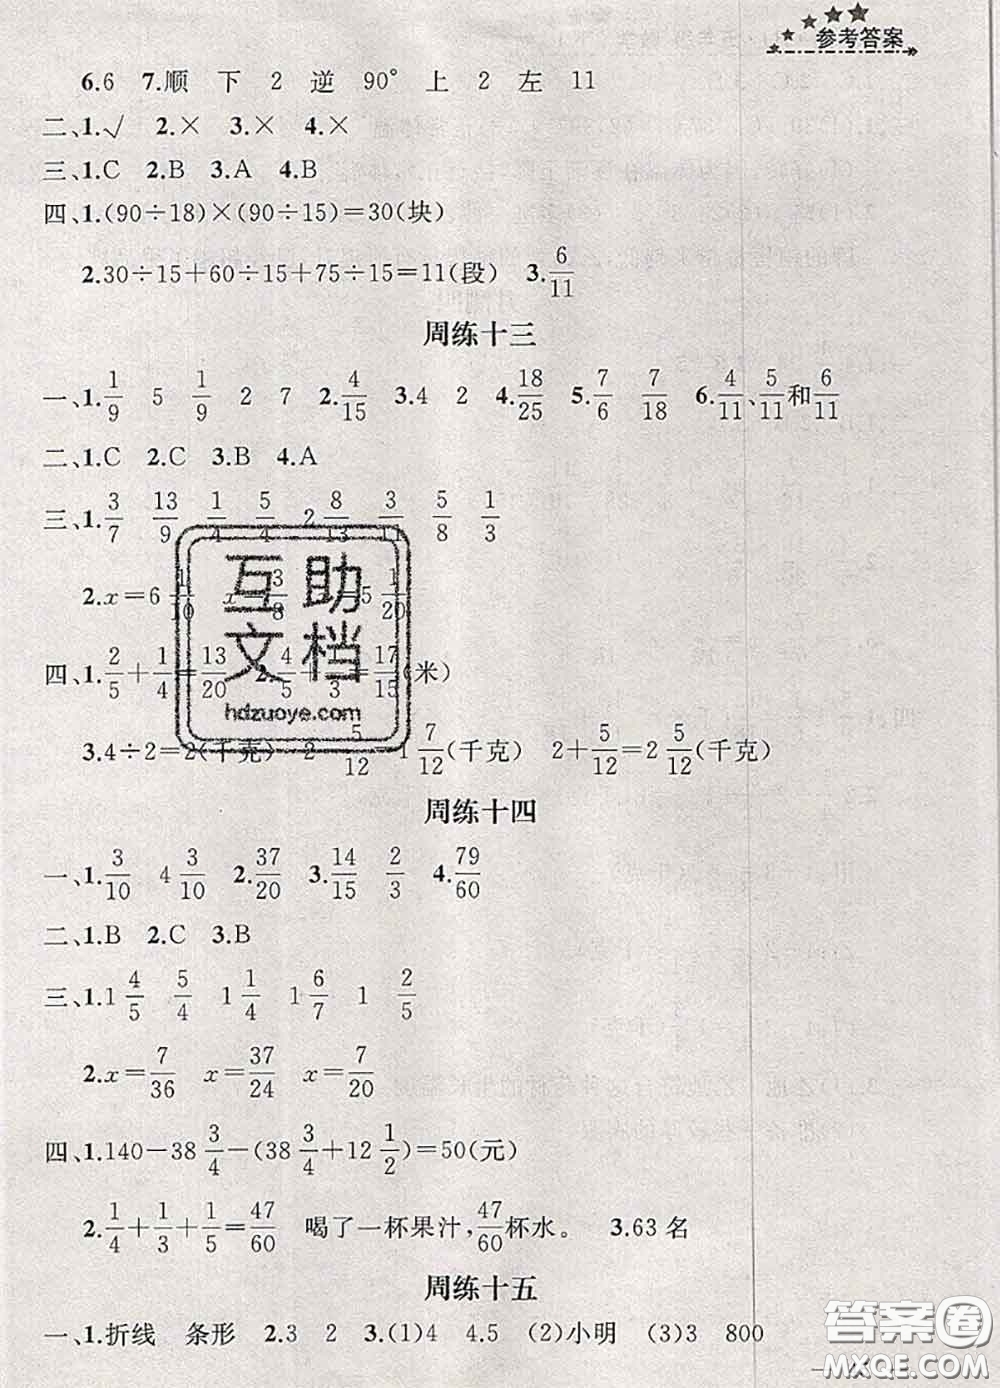 参考答案
6.6 7.顺 下 2 逆 90° 上 2 左 11
二、1.√ 2.× 3.× 4.×
三、1.C 2.B 3.A 4.B
四、1.(90÷18)×(90÷15)=30(块)
2.30÷15+60÷15+75÷15=11(段) 3.6/11
周练十三
一、1.1/9 5 1/9 2 7 2.4/15 3.4 2 4.18/25 5.7/6 7/18 6.4/11、5/11和6/11
二、1.C 2.C 3.B 4.A
三、1.3/7 13/9 1/4 5/4 2 8/13 3/11 5/8 1/3
2.x=6 1/10 x=3/8 =5 1/20
四、1.2/5+1/4=13/20 2.4/5+1/3=17/15(米)
3.4÷2=2(千克) 2 5/12=1 7/12(千克) 2+5/12=2 5/12(千克)
互助
文档
hdzuoye.com
周练十四
一、1.3/10 4 3/10 2.37/20 3.14/15 2/3 4.79/60
二、1.B 2.C 3.B
三、1.1 4/5 5/4 1 1/4 1 6/7 1 2/5
2.x=7/36 x=37/24 x=7/20
四、1.140-38 3/4-(38 3/4+12 1/2)=50(元)
2.1/4+1/3+1/5=47/60 喝了一杯果汁,47/60杯水。 3.63名
周练十五
一、1.折线 条形 2.3 2 3.(1)4 4.5 (2)小明 (3)3 800
答案圈
MXQE.COM